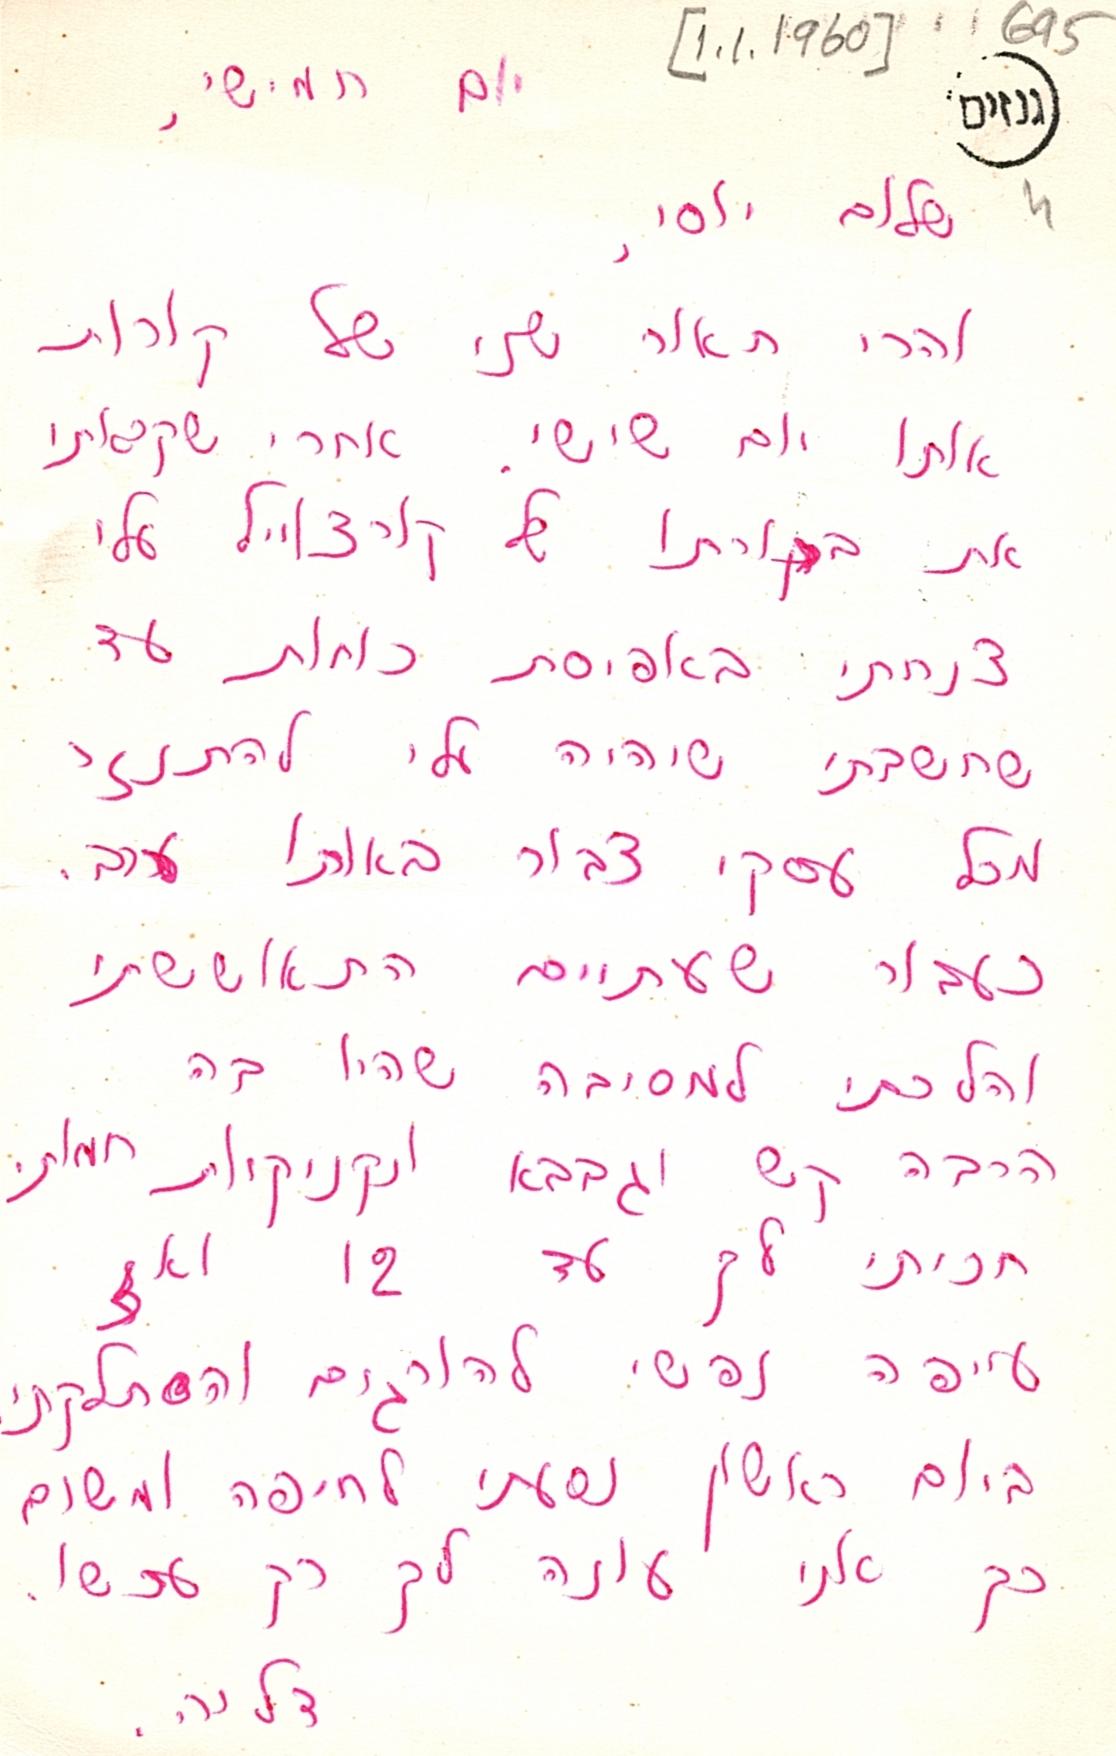 [1.1.1960] 695
גנזים
יום חמישי,
שלום יוסי,
והרי תאור שני של קורות
אותו יום שישי. אחרי שקראתי
את בקורתו של קורצווייל עלי
צנחתי באפיסת כוחות עד
שחשבתי שיהיה עלי להתנזר
מכל עסקי צבור באותו ערב.
כעבור שעתיים התאוששתי
והלכתי למסיבה שהיו בה
הרבה קש וגבבא ונקניקות חמות
חכיתי לך עד 12 ואז
עייפה נפשי להורגים והסתלקתי
ביום ראשון נסעתי לחיפה ומשום
כך אני עונה לך רק עכשו.
דליה.